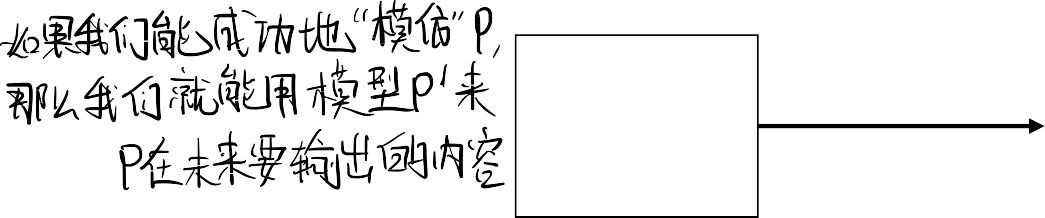 如果我们能成功地“模仿”P,
那么我们就能用模型P'来
P在未来要输出的内容